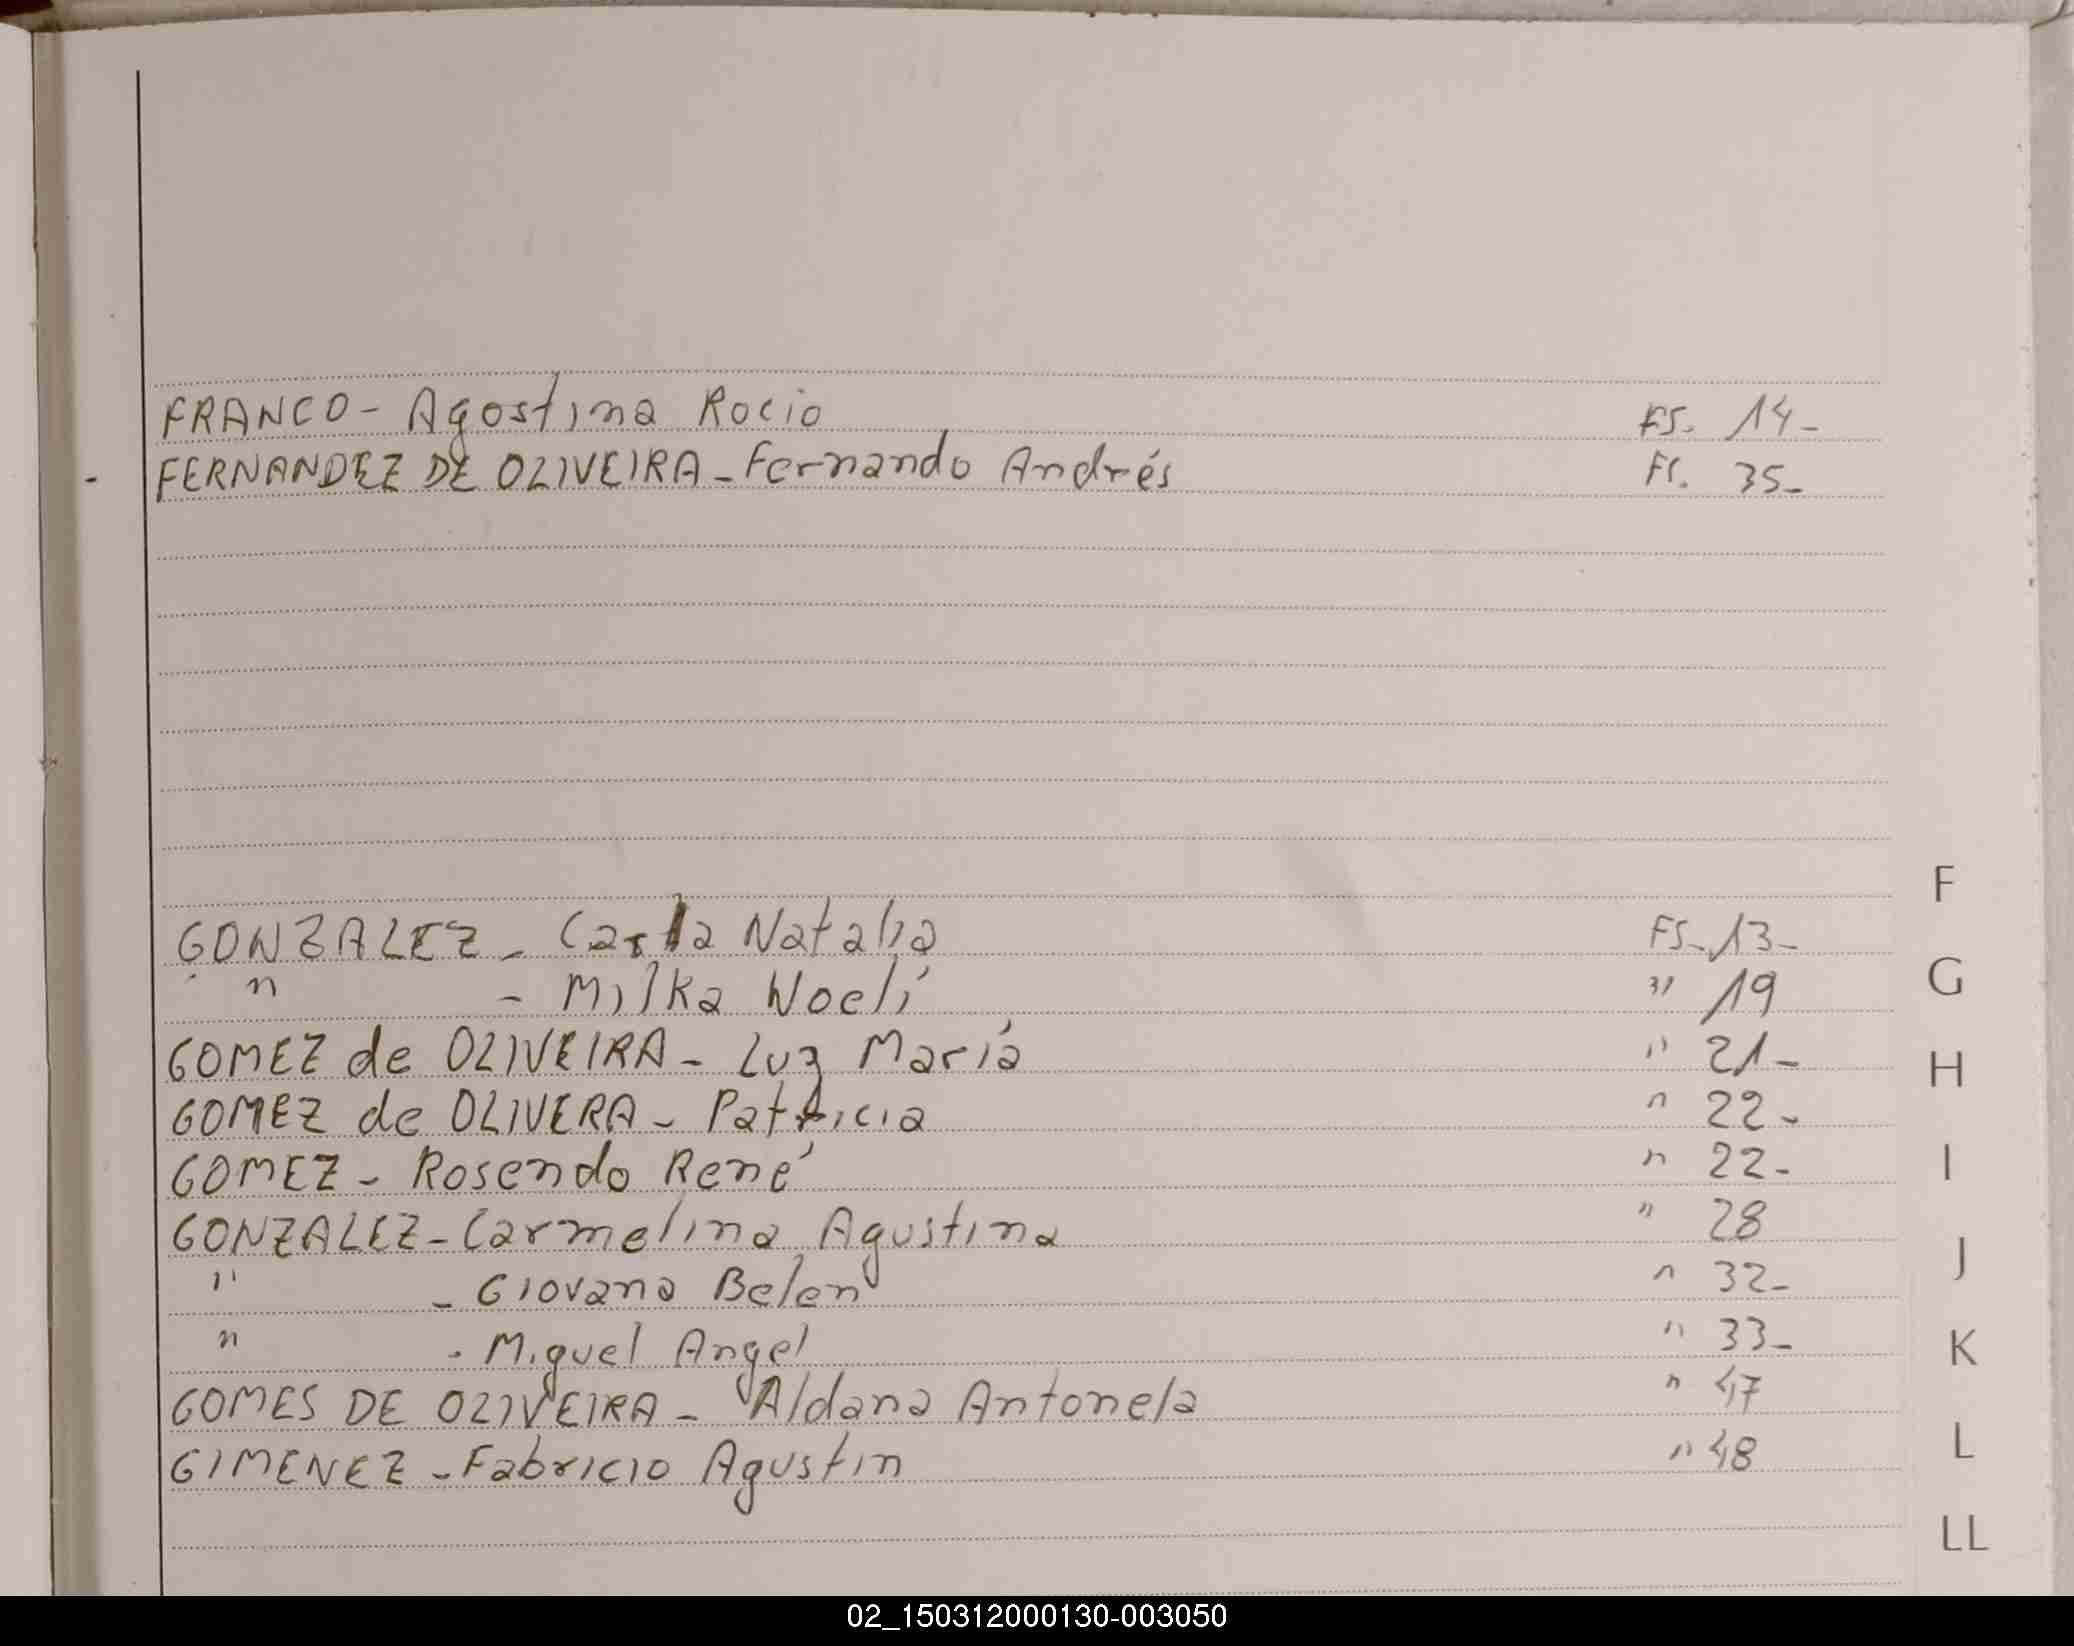 FRANCO - Agostina Rocio FS. 14-
- FERNANDEZ DE OLIVEIRA - Fernando Andrés FS. 35-
F
GONZALEZ - Carla Natalia FS- 13-
" - Milka Noelí " 19
G
GOMEZ de OLIVEIRA - Luz María " 21-
H
GOMEZ de OLIVERA - Patricia " 22-
GOMEZ - Rosendo René " 22-
I
GONZALEZ - Carmelina Agustina " 28
J
" - Giovana Belen " 32-
" - Miguel Angel " 33-
K
GOMES DE OLIVEIRA - Aldana Antonela " 47
L
GIMENEZ - Fabricio Agustin " 48
LL
02_150312000130-003050